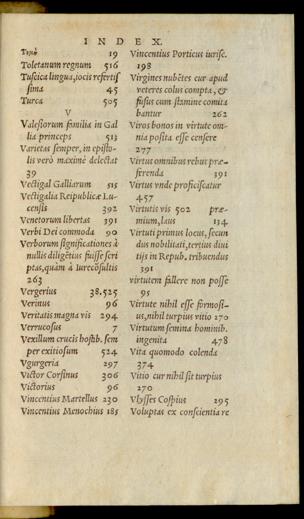 INDEX.
19
Toletanum regnum 516
Tuscica lingua, iocis refertis
sima 45
Turca 505
V
Valesiorum familia in Gal
lia princeps 513
Varietas semper, in episto-
lis verò maximè delectat
39
Vectigal Galliarum 515
Vectigalia Reipublicæ Lu-
censis 392
Venetorum libertas 391
Verbi Dei commoda 90
Verborum significationes à
nullis diligētius fuisse scri
ptas, quàm à Iurecōsultis
263
Vergerius 38.525
Verinus 96
Veritatis magna vis 294
Verrucosus 7
Vexillum crucis hostib. sem
per exitiosum 524
Vgurgeria 297
Victor Corsinus 306
Victorius 96
Vincentius Martellus 230
Vincentius Menochius 185
Vincentius Porticus iurisc.
198
Virgines nubētes cur apud
veteres colus compta, &
fusus cum stamine comita
bantur 262
Viros bonos in virtute om-
nia posita esse censere
277
Virtus omnibus rebus præ-
ferenda 191
Virtus vnde proficiscatur
457
Virtutis vis 502 præ-
mium, laus 134
Virtuti primus locus, secun
dus nobilitati, tertius diui
tijs in Repub. tribuendus
391
virtutem fallere non posse
95
Virtute nihil esse formosi-
us, nihil turpius vitio 270
Virtutum semina hominib.
ingenita 478
Vita quomodo colenda
374
Vitio cur nihil sit turpius
270
Vlysses Cospius 295
Voluptas ex conscientia re